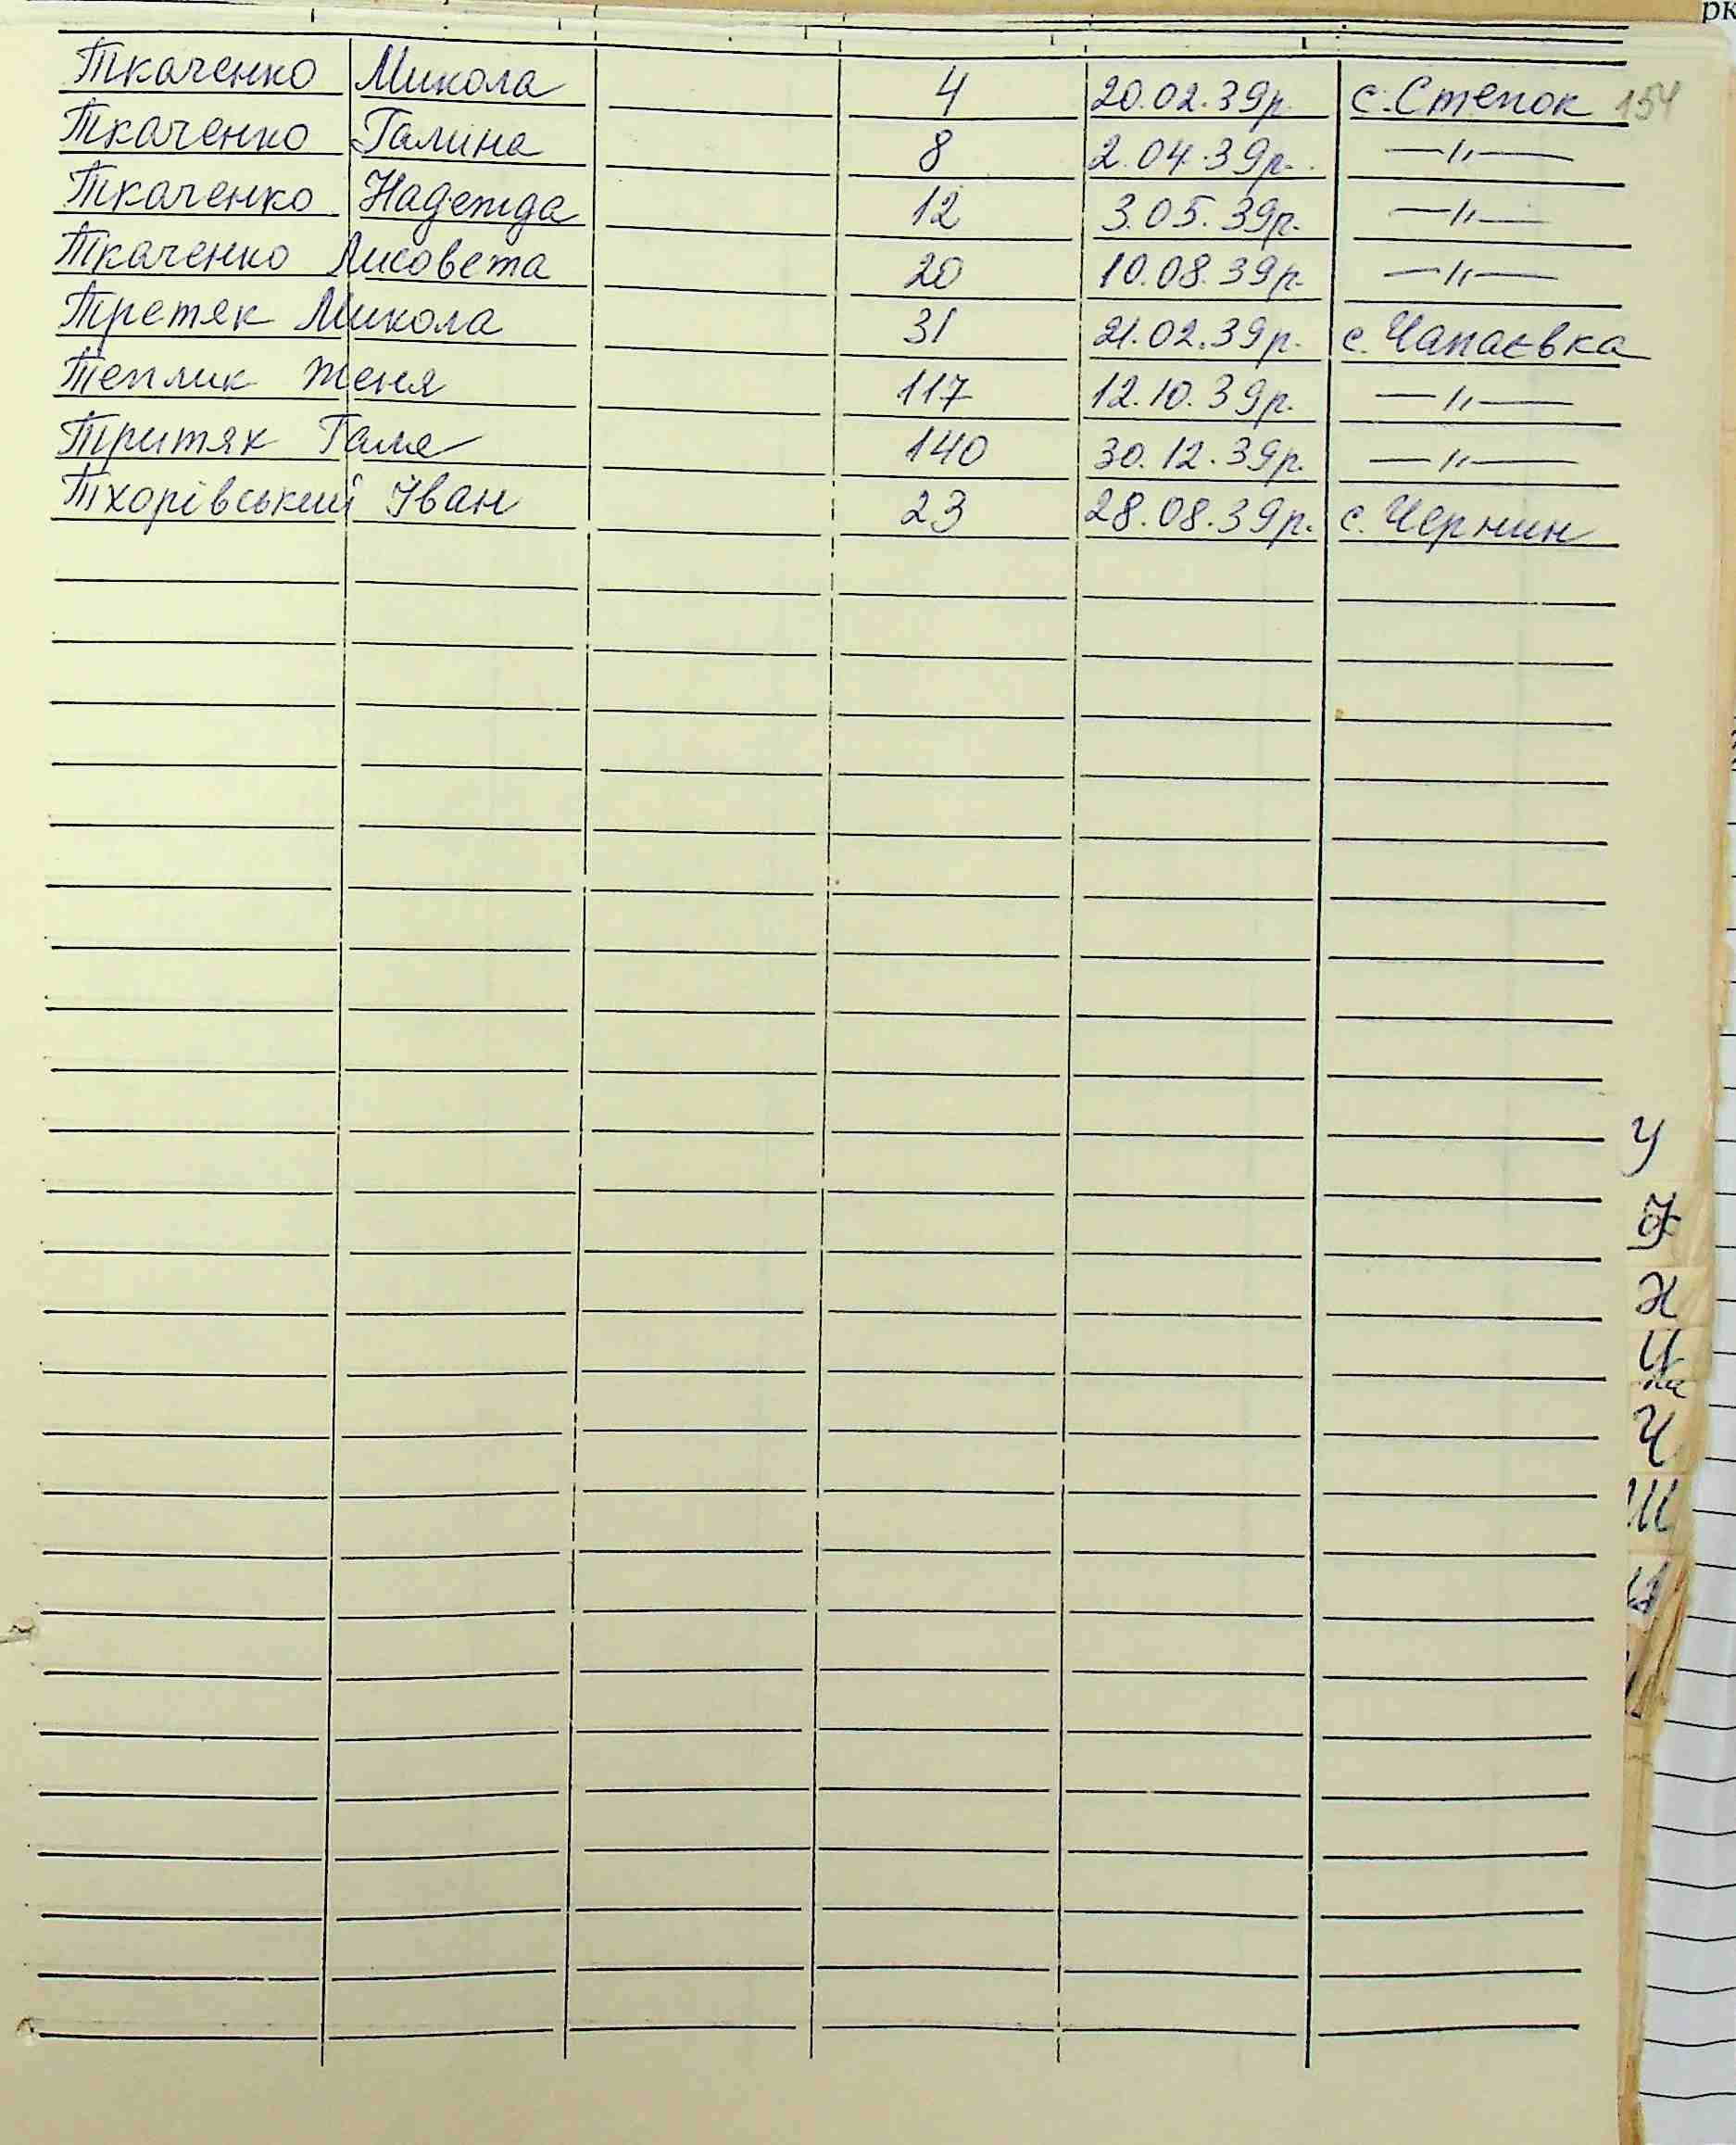 рк
Ткаченко Микола 4 20.02.39р. с. Степок 154
Ткаченко Галина 8 2.04.39р. —〃—
Ткаченко Надежда 12 3.05.39р. —〃—
Ткаченко Лисовета 20 10.08.39р. —〃—
Третяк Микола 31 21.02.39р. с. Чапаєвка
Теплик Женя 117 12.10.39р. —〃—
Тритяк Галя 140 30.12.39р. —〃—
Тхорівський Іван 23 28.08.39р. с. Чернин
У
Ф
Х
Ц
Ч
Ш